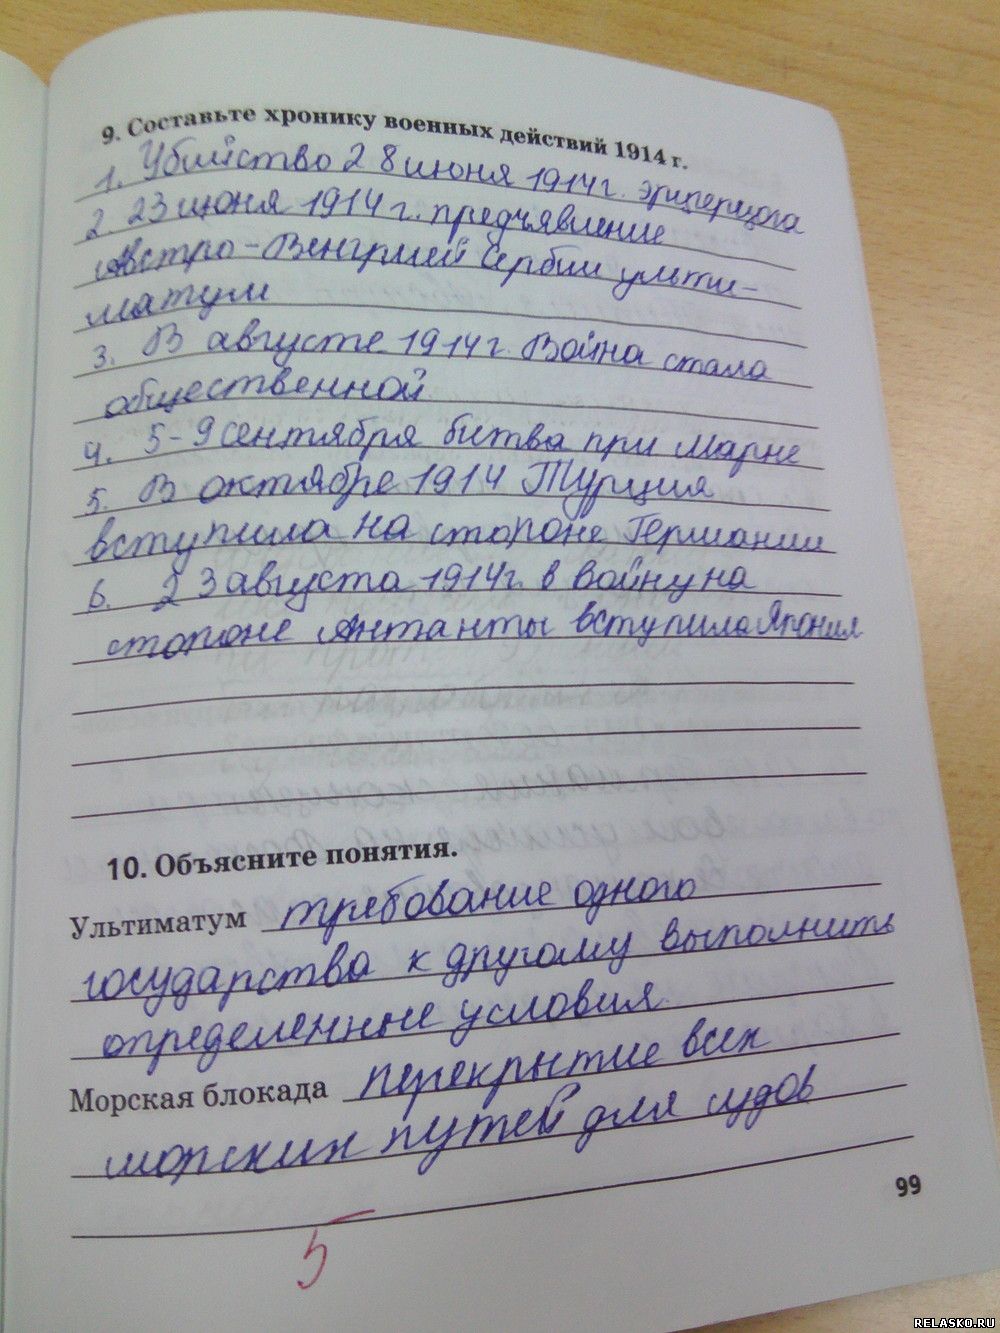 9. Составьте хронику военных действий 1914 г.
1. Убийство 28 июня 1914 г. эрцгерцога
2. 23 июня 1914 г. предъявление
Австро-Венгрией Сербии ульти-
матум
3. В августе 1914 г. Война стала
общественной
4. 5-9 сентября битва при Марне
5. В октябре 1914 Турция
вступила на стороне Германии
6. 23 августа 1914 г. в войну на
стороне Антанты вступила Япония
10. Объясните понятия.
Ультиматум требование одного
государства к другому выполнить
определенные условия.
Морская блокада перекрытие всех
морских путей для судов
99
5
RELASKO.RU